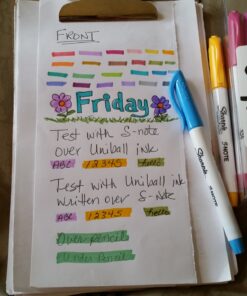 FRONT
Friday
Test with S-note
over Uniball ink
ABC 12345 hello
Test with Uniball ink
written over S-note
ABC 12345 hello
Over pencil
Under Pencil
Sharpie
Sharpie S·NOTE
Sharpie S·NOTE